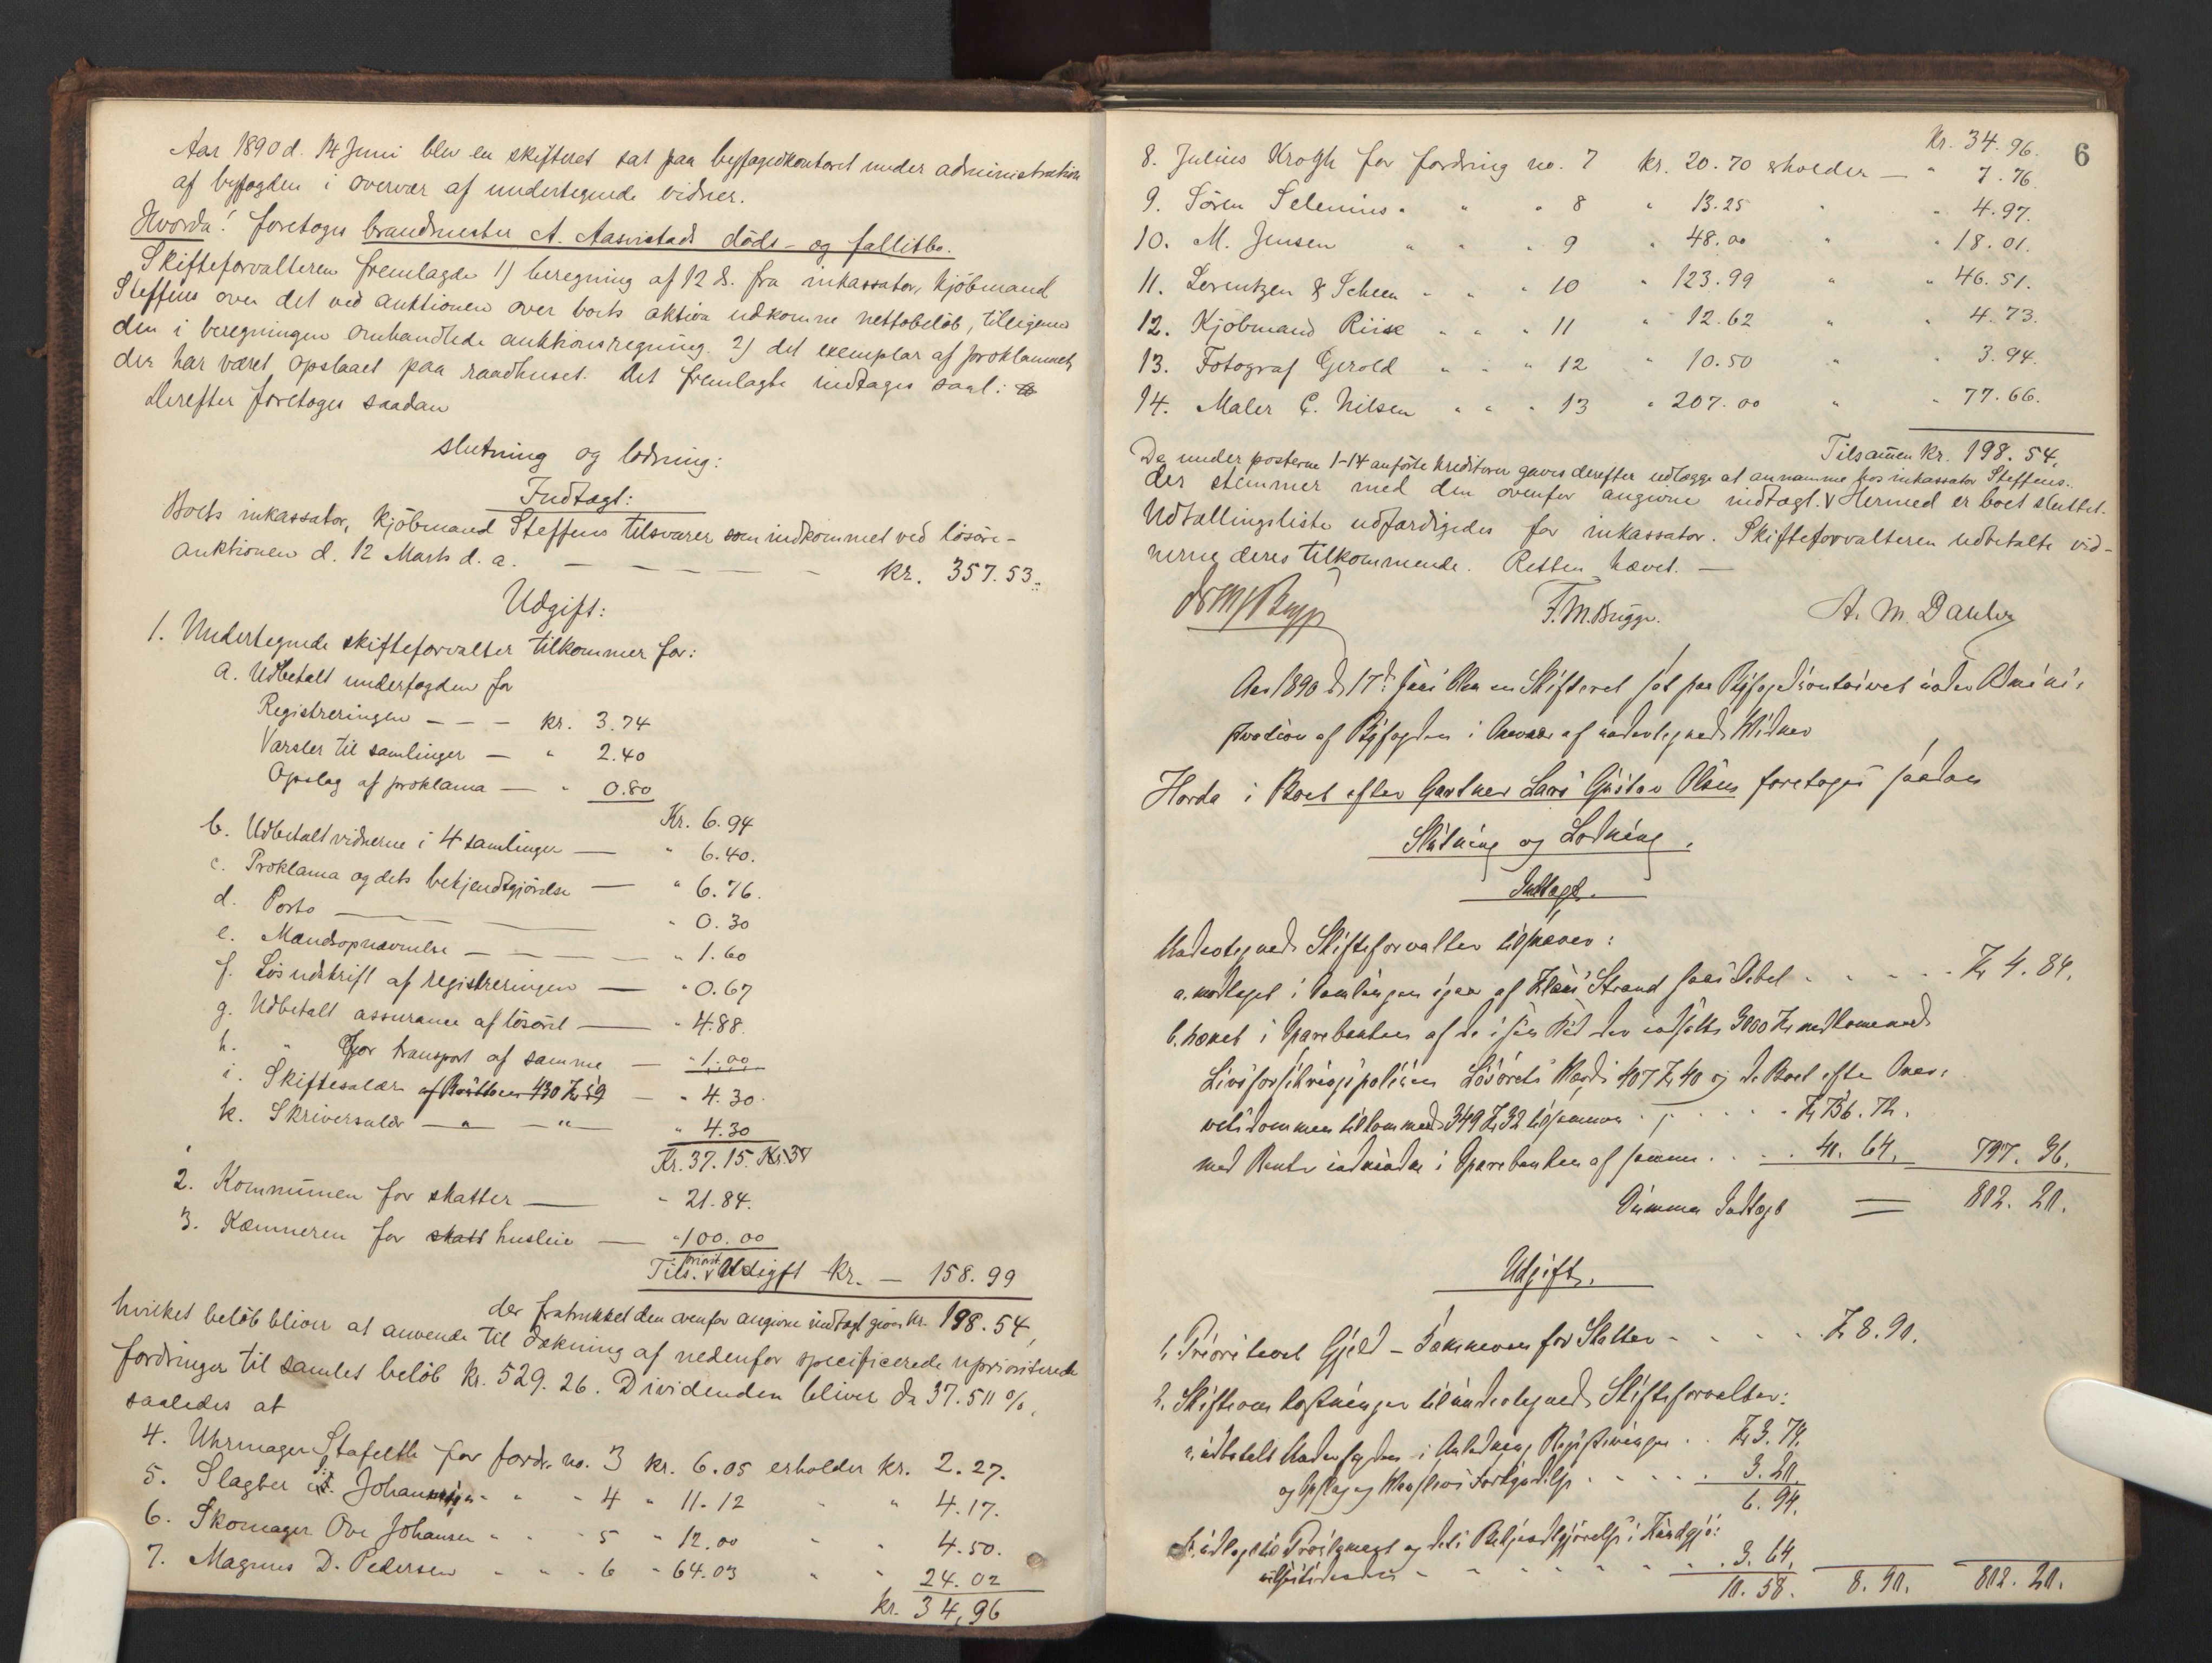 Aar 1890 d. 14 Juni blev en skifteret sat paa byfogedkontoret under administration
af byfogden i overvær af undertegnede vidner.
Hvorda! foretoges brandmester A. Aasvistads döds- og fallitbo.
Skifteforvalteren fremlagde 1) beregning af 12 ds. fra inkassator, kjöbmand
Steffens over det ved auktionen over boets aktiva udkomne nettobelöb, tilligemed
den i beregningen omhandlede auktionsregning. 2) det exemplar af proklamaet,
der har været opslaaet paa raadhuset. Det fremlagte indtages saal:
Derefter foretoges saadan
slutning og lodning:
Indtægt:
Boets inkassator, kjöbmand Steffens tilsvarer som indkommet ved lösöre-
auktionen d. 12 Marts d. a. — — — — — — kr. 357.53.
Udgift:
1. Undertegnede skifteforvalter tilkommer for:
a. Udbetalt underfogden for
Registreringen — — — kr. 3.74
Varsler til samlinger — " 2.40
Opslag af proklama — " 0.80
Kr. 6.94
b. Udbetalt vidnerne i 4 samlinger — " 6.40.
c. Proklama og dets bekjendtgjörelse — " 6.76.
d. Porto — " 0.30
e. Mandsopnævnelse — — — — " 1.60
f. Lös udskrift af registreringen — " 0.67
g. Udbetalt assurance af lösöret — " 4.88.
h. " for transport af samme — " 1.00
i. Skiftesalær af Bruttoen 430 Kr 59 — " 4.30.
k. Skriversalær — " — " — " 4.30
Kr. 37.15. Kr 37
2. Kommunen for skatter — " 21.84.
3. Kæmneren for skatt husleie — " 100.00
Tils. priorit. Udgift kr. — 158.99
der fratrukket den ovenfor angivne indtægt giver kr. 198.54,
hvilket belöb bliver at anvende til dækning af nedenfor specificerede uprioriterede
fordringer til samlet belöb kr. 529.26. Dividenden bliver da 37.511 %,
saaledes at
4. Uhrmager Stafseth for fordr. no. 3 kr. 6.05 erholder kr. 2.27.
5. Slagter Johannesen " " " 4 " 11.12 " " 4.17.
6. Skomager Ove Johansen " " " 5 " 12.00 " " 4.50.
7. Magnus D. Pedersen " " " 6 " 64.03 " " 24.02
kr. 34,96
6
Kr. 34.96.
8. Julius Krogh for fordring no. 7 kr. 20.70 erholder — " 7.76.
9. Sören Selenius " " " 8 " 13.25 " " 4.97.
10. M. Jensen " " " 9 " 48.00 " " 18.01.
11. Lorentzen & Scheen " " " 10 " 123.99 " " 46.51.
12. Kjöbmand Riise " " " 11 " 12.62 " " 4.73.
13. Fotograf Gerold " " " 12 " 10.50 " " 3.94.
14. Maler C. Nilsen " " " 13 " 207.00 " " 77.66.
Tilsamen kr. 198.54,
De under posterne 1-14 anförte kreditorer gaves derefter udlægge at annamme hos inkassator Steffens.
der stemmer med den ovenfor angivne indtægt. Hermed er boet sluttet.
Udtællingsliste udfærdigedes for inkassator. Skifteforvalteren udbetalte vid-
nerne deres tilkommende. Retten hævet. —
F. M. Brügge. A. M. Dahler
Aar 1890 d. 17de Juni blev en Skifteret sat paa Byfogedkontoiret under Admini-
stration af Byfogden i Overvær af undertegnede Vidner
Hvorda i Boet efter Gartner Lars Gustav Olsen foretoges saadan
Slutning og Lodning.
Indtægt.
Undertegnede Skifteforvalter tilsvarer:
a. modtaget i Samlingen igaar af Strand hans Debet . . . . . Kr 4. 84.
b. hævet i Sparebanken af de i sin Tid der indsatte 3000 Kr vedkommende
Livsforsikringspolicen Lösörets Værdi 407 Kr 40 og de Boet efter Over-
retsdommen tilkommende 349 Kr 32 tilsammen . . . . Kr 756. 72.
med Renter indvundne i Sparebanken af samme . . . . 40. 64. 797. 36.
Summa Indtægt = 802. 20.
Udgift.
1. Prioriteret Gjeld – Kæmneren for Skatter . . . . . Kr 8. 90.
2. Skifteomkostninger til undertegnede Skifteforvalter:
a. udbetalt Underfogden i Anledning Registeringen . . Kr 3. 74.
og Opslag og Varslers Forkyndelse . . . . . . 3. 20.
6. 94.
b. udlagt til Proklamaet og dets Bekjendtgjörelse i Kundgjö:
. . . . . . . 3. 64.
10. 58. 8. 90. 802. 20.